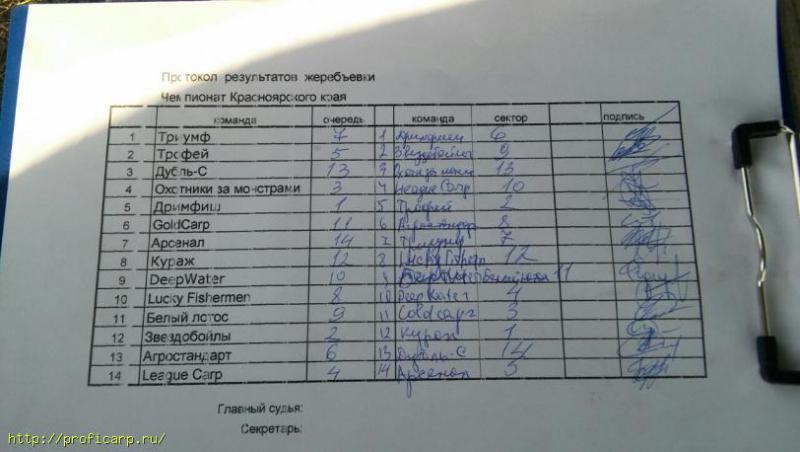 Протокол результатов жеребьевки
Чемпионат Красноярского края
команда очередь команда сектор подпись
1 Триумф 7 1 Дримфиш 6
2 Трофей 5 2 Звездобойлы 9
3 Дубль-С 13 3 13
4 Охотники за монстрами 3 4 League Carp 10
5 Дримфиш 1 5 Трофей 2
6 GoldCarp 11 6 Агростандарт 8
7 Арсенал 14 7 Триумф 7
8 Кураж 12 8 Lucky Fishermen 12
9 DeepWater 10 9 11
10 Lucky Fishermen 8 10 DeepWater 4
11 Белый лотос 9 11 Goldcarp 3
12 Звездобойлы 2 12 Кураж 1
13 Агростандарт 6 13 Дубль-С 14
14 League Carp 4 14 Арсенал 5
Главный судья:
Секретарь:
http://proficarp.ru/